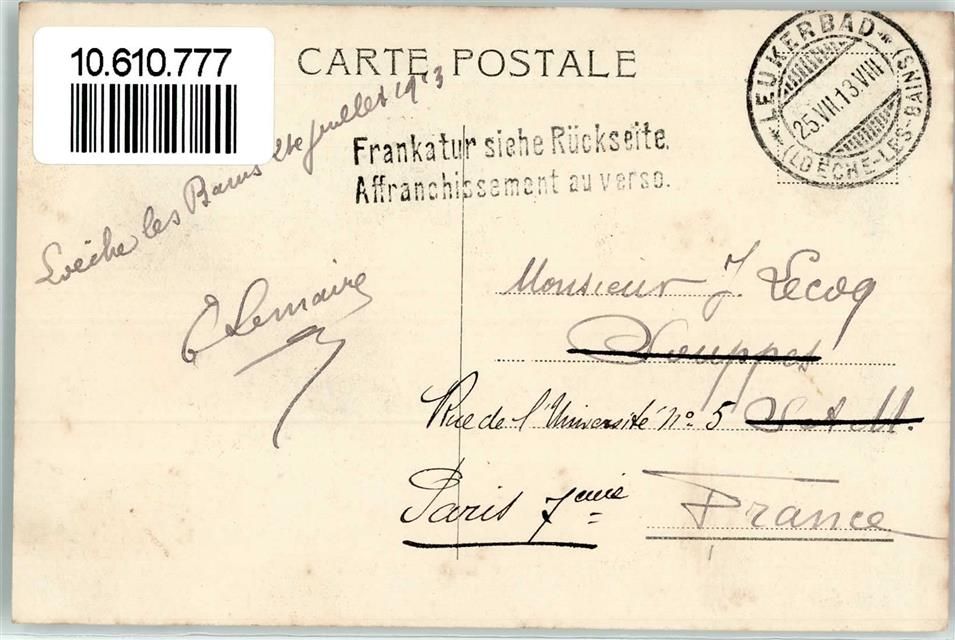 10.610.777
CARTE POSTALE
LEUKERBAD
25.VII.13.VIII
(LOÈCHE-LES-BAINS)
Frankatur siehe Rückseite.
Affranchissement au verso.
Loèche les Bains juillet 1913
Lemaire
Monsieur J. Lecoq
Souppes
Rue de l'Université no 5 S et M.
Paris 7eme France